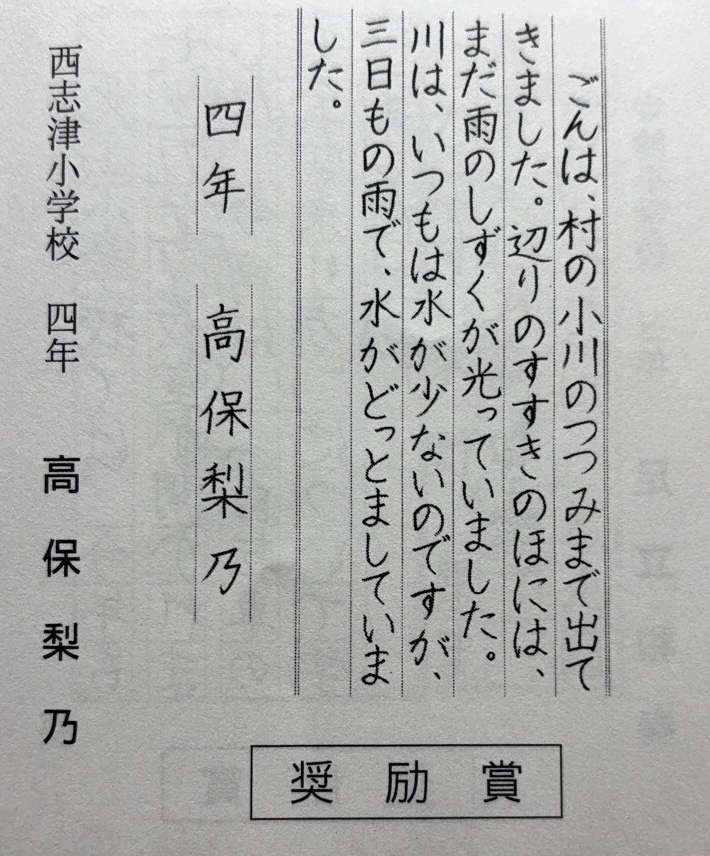 ごんは、村の小川のつつみまで出て
きました。辺りのすすきのほには、
まだ雨のしずくが光っていました。
川は、いつもは水が少ないのですが、
三日もの雨で、水がどっとましていま
した。
四年 高保梨乃
西志津小学校 四年 高保梨乃
奨励賞